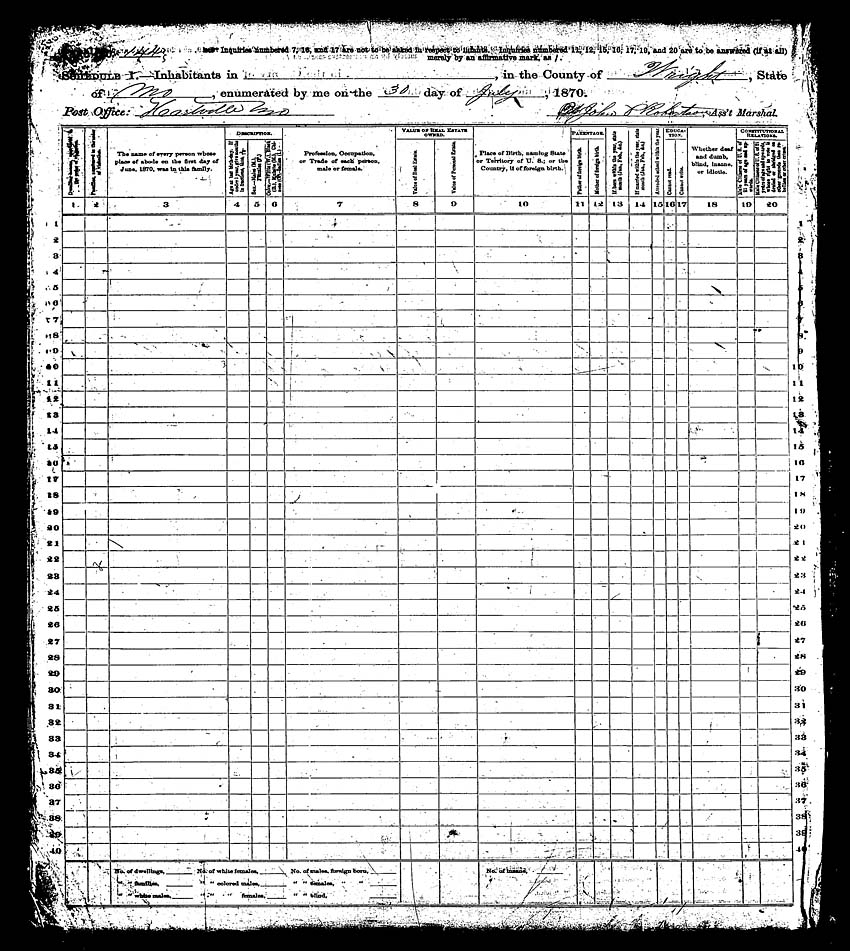 Inquiries numbered 7, 16, and 17 are not to be asked in respect to infants. Inquiries numbered 11, 12, 15, 16, 17, 19, and 20 are to be answered (if at all)
merely by an affirmative mark, as /.
SCHEDULE 1.—Inhabitants in , in the County of Wright, State
of Mo, enumerated by me on the 30 day of July, 1870.
Post Office: Hartville Mo John Ass't Marshal.
DESCRIPTION. VALUE OF REAL ESTATE OWNED. PARENTAGE. EDUCATION. CONSTITUTIONAL RELATIONS.
The name of every person whose place of abode on the first day of June, 1870, was in this family.
Profession, Occupation, or Trade of each person, male or female.
Value of Real Estate.
Value of Personal Estate.
Place of Birth, naming State or Territory of U. S.; or the Country, if of foreign birth.
Father of foreign birth.
Mother of foreign birth.
If born within the year, state month (Jan, Feb, &c.)
If married within the year, state month (Jan, Feb, &c.)
Attended school within the year.
Cannot read.
Cannot write.
Whether deaf and dumb, blind, insane, or idiotic.
1 2 3 4 5 6 7 8 9 10 11 12 13 14 15 16 17 18 19 20
1 1
2 2
3 3
4 4
5 5
6 6
7 7
8 8
9 9
10 10
11 11
12 12
13 13
14 14
15 15
16 16
17 17
18 18
19 19
20 20
21 21
22 22
23 23
24 24
25 25
26 26
27 27
28 28
29 29
30 30
31 31
32 32
33 33
34 34
35 35
36 36
37 37
38 38
39 39
40 40
No. of dwellings, No. of white females, No. of males, foreign born, No. of insane,
" " families, " " colored males, " " females, " "
" " white males, " " " females, " " blind,